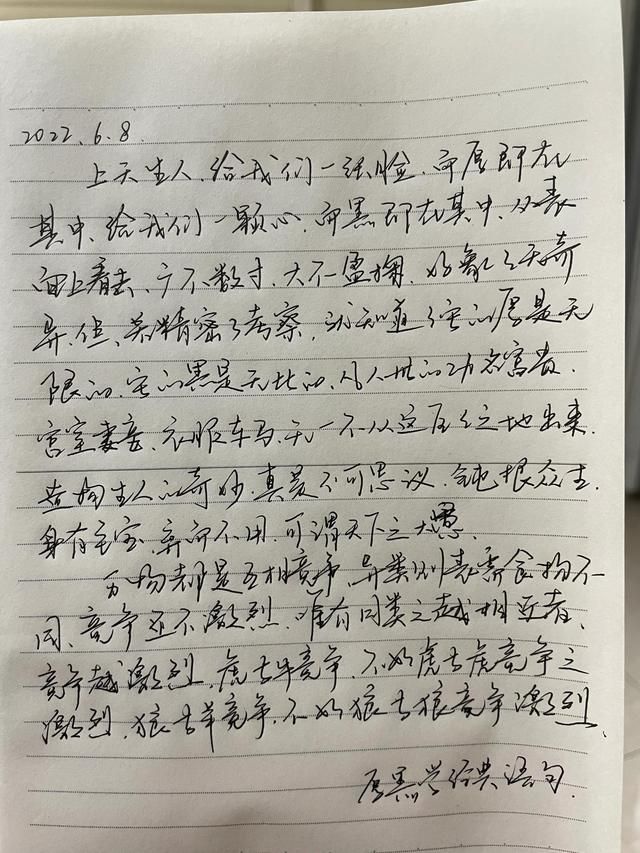 2022.6.8.
上天生人、给我们一张脸、而厚即在
其中、给我们一颗心、而黑即在其中、从表
面上看去、广不数寸、大不盈掬、好象了无奇
异、但、若精密的考察、就知道它的厚是无
限的、它的黑是无比的、凡人世的功名富贵、
宫室妻妾、衣服车马、无一不从这区区之地出来、
造物生人的奇妙、真是不可思议、钝根众生、
身有至宝、弃而不用、可谓天下之大愚、
万物都是互相竞争、异类则表需食物不
同、竞争还不激烈、唯有同类之越相近者、
竞争越激烈、虎与牛竞争、不如虎与虎竞争之
激烈、狼与羊竞争、不如狼与狼竞争激烈、
厚黑学经典语句、